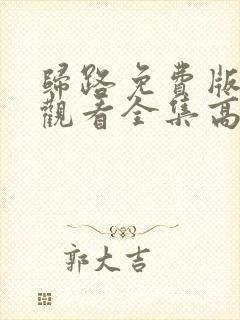 歸路免費版
觀看全集高
郭大吉